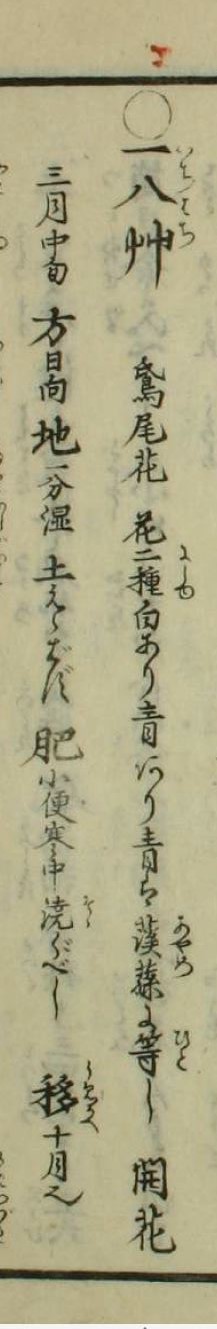 ○一八艸 鳶尾花 花二種白あり青あり青は蕺蕤に等し 開花
三月中旬 方日向 地一分湿 土えらばず 肥小便寒中澆ぐべし 移十月之